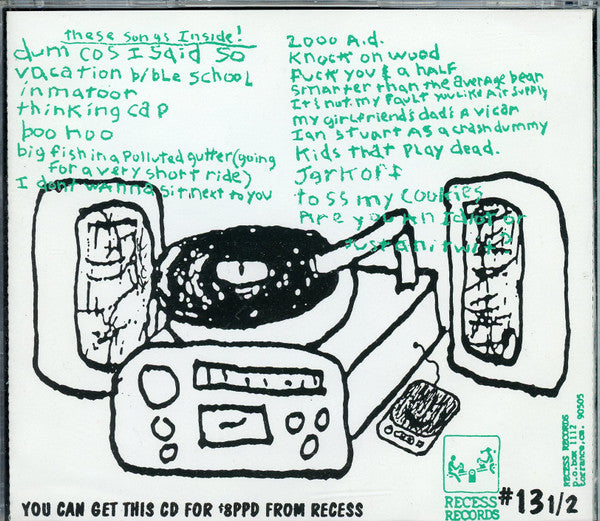 these songs Inside!
dum cos I said so
vacation bible school
inmatoor
thinking cap
boo hoo
big fish in a polluted gutter (going
for a very short ride)
I dont wanna sit next to you
2000 A.d.
knock on wood
fuck you & a half
smarter than the average bear
It's not my fault you like Air Supply
my girlfriends dad's a vicar
Ian Stuart As a crash dummy
kids that play dead.
Jerk off
toss my cookies
Are you an Idiot or
just a nitwit?
RECESS RECORDS
p.o.box 1112
torrance,ca. 90505
RECESS
RECORDS
#13 1/2
YOU CAN GET THIS CD FOR $8PPD FROM RECESS